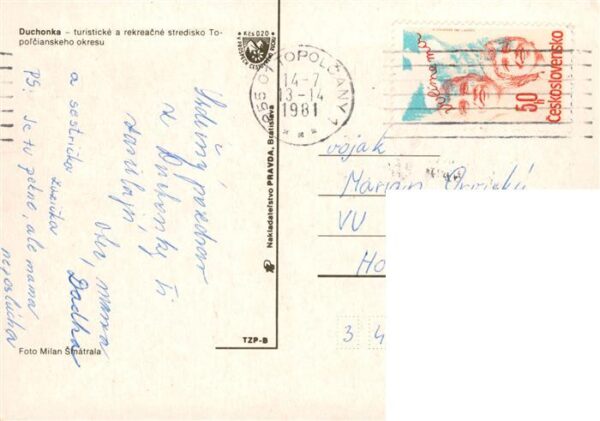 Duchonka – turistické a rekreačné stredisko To-
poľčianskeho okresu
Kčs 0,20
955 01 TOPOĽČANY 1
14-7
13-14
1981
Československo
50h
Srdečný pozdrav
z Duchonky ti
otec, mama
a sestrička
Dadka
PS. Je tu pekne, ale mama
neposlúcha
vojak
Marián
VU
Ho
3 4
Nakladateľstvo PRAVDA, Bratislava
TZP-B
Foto Milan Šmátrala